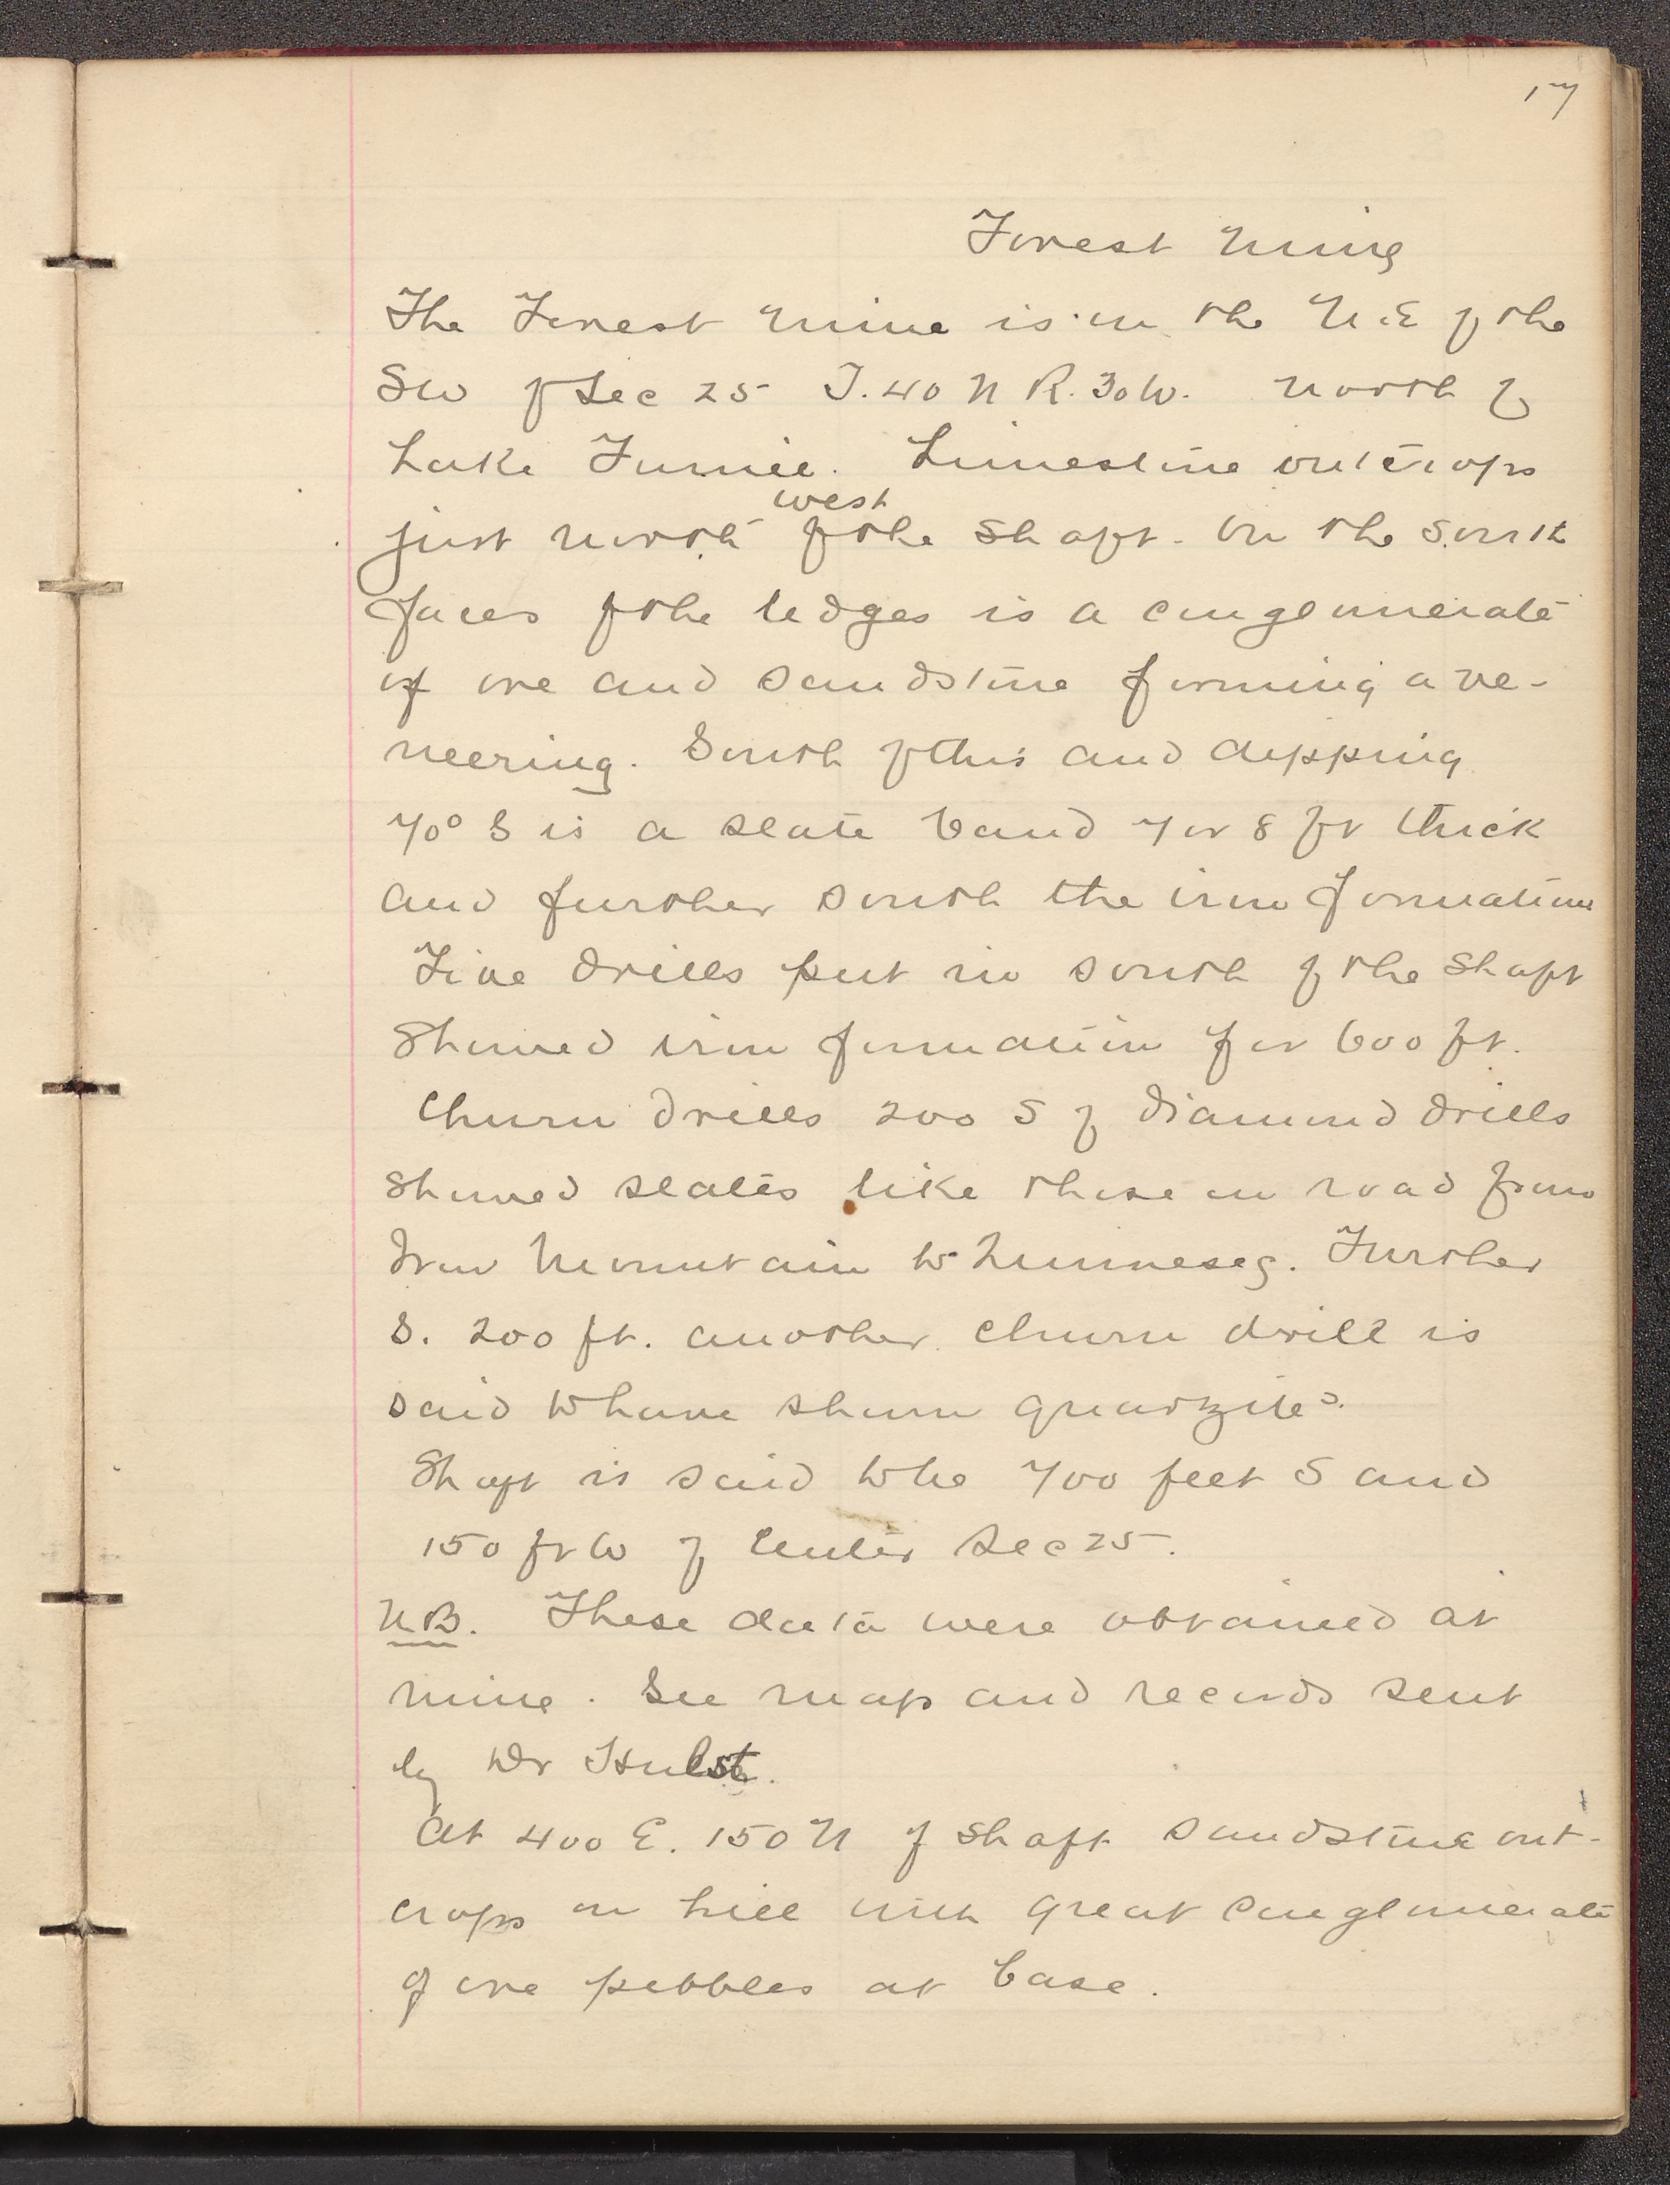 17
Forest Mine
The Forest Mine is in the N.E of the
SW of Sec 25 T.40 N R.30W. North of
Lake Fumee. Limestone outcrops
west
just north of the shaft. On the south
faces of the ledges is a conglomerate
of ore and sandstone forming a ve-
neering. South of this and dipping
70° S is a slate band 7 or 8 ft thick
and further south the iron formation
Five drills put in south of the shaft
showed iron formation for 600 ft.
Churn drills 200 S of diamond drills
showed slates like those on road from
Iron Mountain to Quinnesec. Further
S. 200 ft. another churn drill is
said to have shown quartzite.
Shaft is said to be 700 feet S and
150 ft W of Center Sec 25.
N.B. These data were obtained at
mine. See map and records sent
by Dr Hulst.
At 400 E. 150 N of shaft sandstone out-
crops on hill with great conglomerate
of ore pebbles at base.